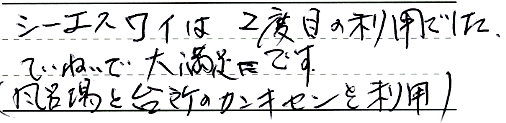 シーエスワイは2度目の利用でした、
ていねいで大満足です
(風呂場と台所のカンキセンを利用)